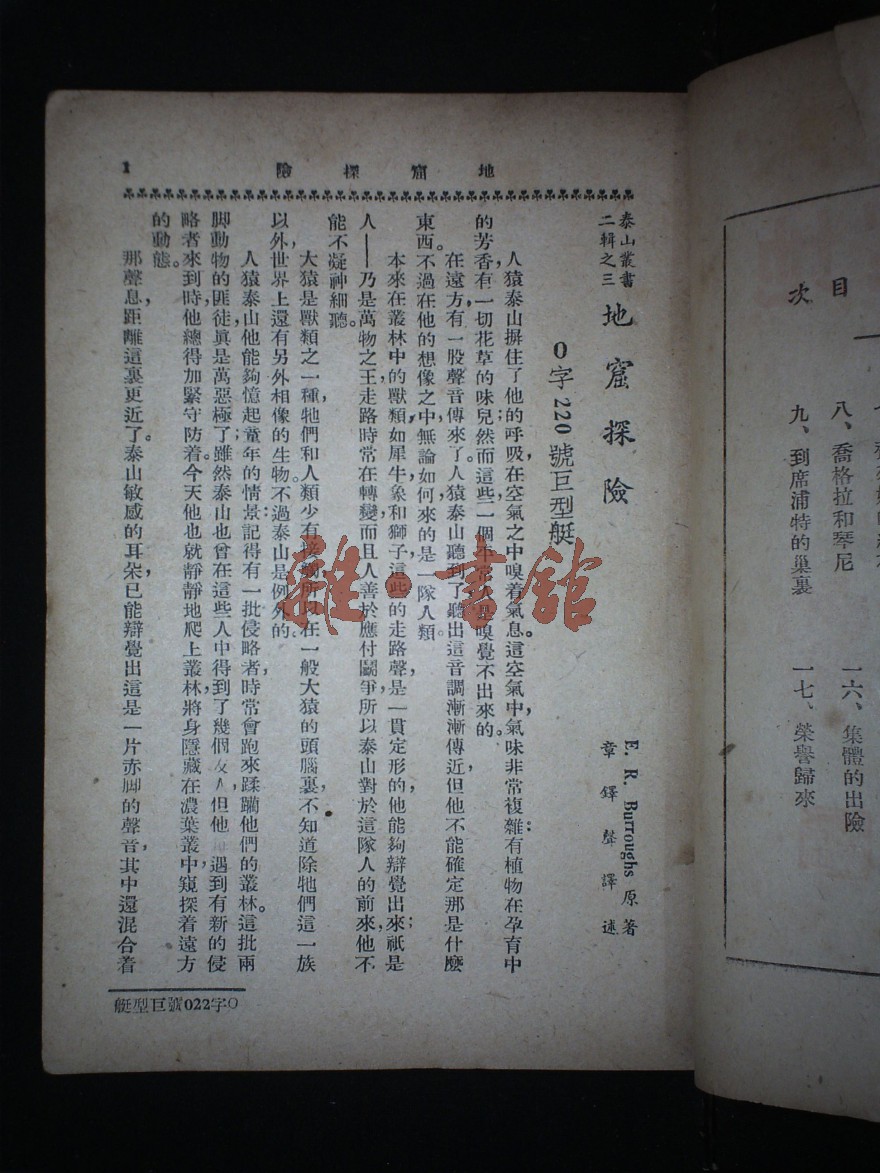 目次
八、喬格拉和琴尼
九、到席浦特的巢裏
一六、集體的出險
一七、榮譽歸來
地窟探險
1
泰山叢書
二輯之三
地窟探險
E. R. Burroughs 原著
章鐸聲譯述
O字220號巨型艇
人猿泰山摒住了他的呼吸，在空氣之中嗅着氣息。這空氣中，氣味非常複雜：有植物在孕育中
的芳香，有一切花草的味兒；然而這些，一個平常人是嗅覺不出來的。
在遠方，有一股聲音傳來了。人猿泰山聽到了，聽出這音調漸漸傳近，但他不能確定那是什麼
東西。不過在他的想像之中，無論如何，來的是一隊人類。
本來在叢林中的獸類，如犀牛，象和獅子，這些的走路聲，是一貫定形的，他能夠辯覺出來；祇是
人——乃是萬物之王，走路時常在轉變，而且人善於應付鬭爭，所以泰山對於這隊人的前來，他不
能不凝神細聽。
大猿是獸類之一種，牠們和人類少有接觸，所以在一般大猿的頭腦裏，不知道除牠們這一族
以外，世界上還有另外相像的生物。不過泰山是例外的。
人猿泰山他能夠憶起童年的情景：記得有一批侵略者，時常會跑來蹂躪他們的叢林。這批兩
脚動物的匪徒，眞是萬惡極了；雖然泰山也曾在這些人中得到了幾個友人，但他 遇到有新的侵
略者來到時，他總得加緊守防着。今天他也就靜靜地爬上叢林，將身隱藏在濃葉叢中，窺探着遠方
的動態。
那聲息，距離這裏更近了。泰山敏感的耳朵，已能辯覺出這是一片赤脚的聲音，其中還混合着
艇型巨號022字O
雜·書館